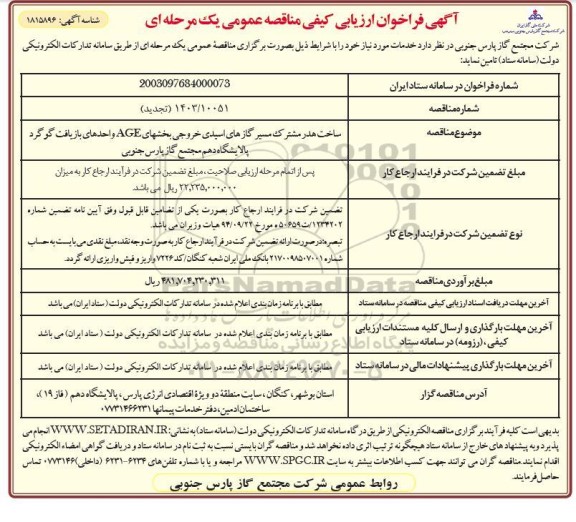 آگهی فراخوان ارزیابی کیفی مناقصه عمومی یک مرحله ای
شناسه آگهی: ۱۸۱۵۸۹۶
شرکت مجتمع گاز پارس جنوبی در نظر دارد خدمات مورد نیاز خود را با شرایط ذیل بصورت برگزاری مناقصهٔ عمومی یک مرحله ای از طریق سامانه تدارکات الکترونیکی
دولت (سامانه ستاد) تامین نماید:
شماره فراخوان در سامانه ستاد ایران
2003097684000073
شماره مناقصه
۱۴۰۳/۱۰۰۵۱ (تجدید)
موضوع مناقصه
ساخت هدر مشترک مسیر گازهای اسیدی خروجی بخشهای AGE واحدهای بازیافت گوگرد
پالایشگاه دهم مجتمع گاز پارس جنوبی
مبلغ تضمین شرکت در فرایند ارجاع کار
پس از اتمام مرحله ارزیابی صلاحیت، مبلغ تضمین شرکت در فرآیند ارجاع کار به میزان
۲۲,۲۳۵,۰۰۰,۰۰۰ ریال می باشد.
نوع تضمین شرکت در فرایند ارجاع کار
تضمین شرکت در فرایند ارجاع کار بصورت یکی از تضامین قابل قبول وفق آیین نامه تضمین شماره
۱۲۳۴۲۰۲/ت۵۰۶۵۹ه مورخ ۹۴/۰۹/۲۲ هیات وزیران می باشد.
تبصره: در صورت ارائه تضمین شرکت در فرآیند ارجاع کار به صورت وجه نقد، مبلغ نقدی می بایست به حساب
شماره ۲۱۷۰۰۹۸۵۰۷۰۰۱ بانک ملی ایران شعبه کنگان/کد۷۲۲۶ واریز و فیش واریزی ارائه گردد.
مبلغ برآوردی مناقصه
۴۸۱,۷۰۴,۲۳۰,۳۱۱ ریال
آخرین مهلت دریافت اسناد ارزیابی کیفی مناقصه در سامانه ستاد
مطابق با برنامه زمان بندی اعلام شده در سامانه تدارکات الکترونیکی دولت (ستاد ایران) می باشد
آخرین مهلت بارگذاری و ارسال کلیه مستندات ارزیابی
کیفی، (رزومه) در سامانه ستاد
مطابق با برنامه زمان بندی اعلام شده در سامانه تدارکات الکترونیکی دولت (ستاد ایران) می باشد
آخرین مهلت بارگذاری پیشنهادات مالی در سامانه ستاد
مطابق با برنامه زمان بندی اعلام شده در سامانه تدارکات الکترونیکی دولت (ستاد ایران) می باشد
آدرس مناقصه گزار
استان بوشهر، کنگان، سایت منطقه دو ویژهٔ اقتصادی انرژی پارس، پالایشگاه دهم (فاز ۱۹)،
ساختمان ادمین، دفتر خدمات پیمانها ۰۷۷۳۱۴۶۶۲۳۱
بدیهی است کلیه فرآیند برگزاری مناقصه الکترونیکی از طریق درگاه سامانه تدارکات الکترونیکی دولت (سامانه ستاد) به نشانی: WWW.SETADIRAN.IR انجام می
پذیرد و به پیشنهاد های خارج از سامانه ستاد هیچگونه ترتیب اثری داده نخواهد شد و مناقصه گران بایستی نسبت به ثبت نام در سامانه ستاد و دریافت گواهی امضاء الکیکی
اقدام نمایند. مناقصه گران می توانند جهت کسب اطلاعات بیشتر به سایت WWW.SPGC.IR مراجعه و یا با شماره تلفن های ۶۲۳۴-۶۲۳۱ (داخلی) ۰۷۷۳۱۴۶ تماس
حاصل فرمایند.
روابط عمومی شرکت مجتمع گاز پارس جنوبی